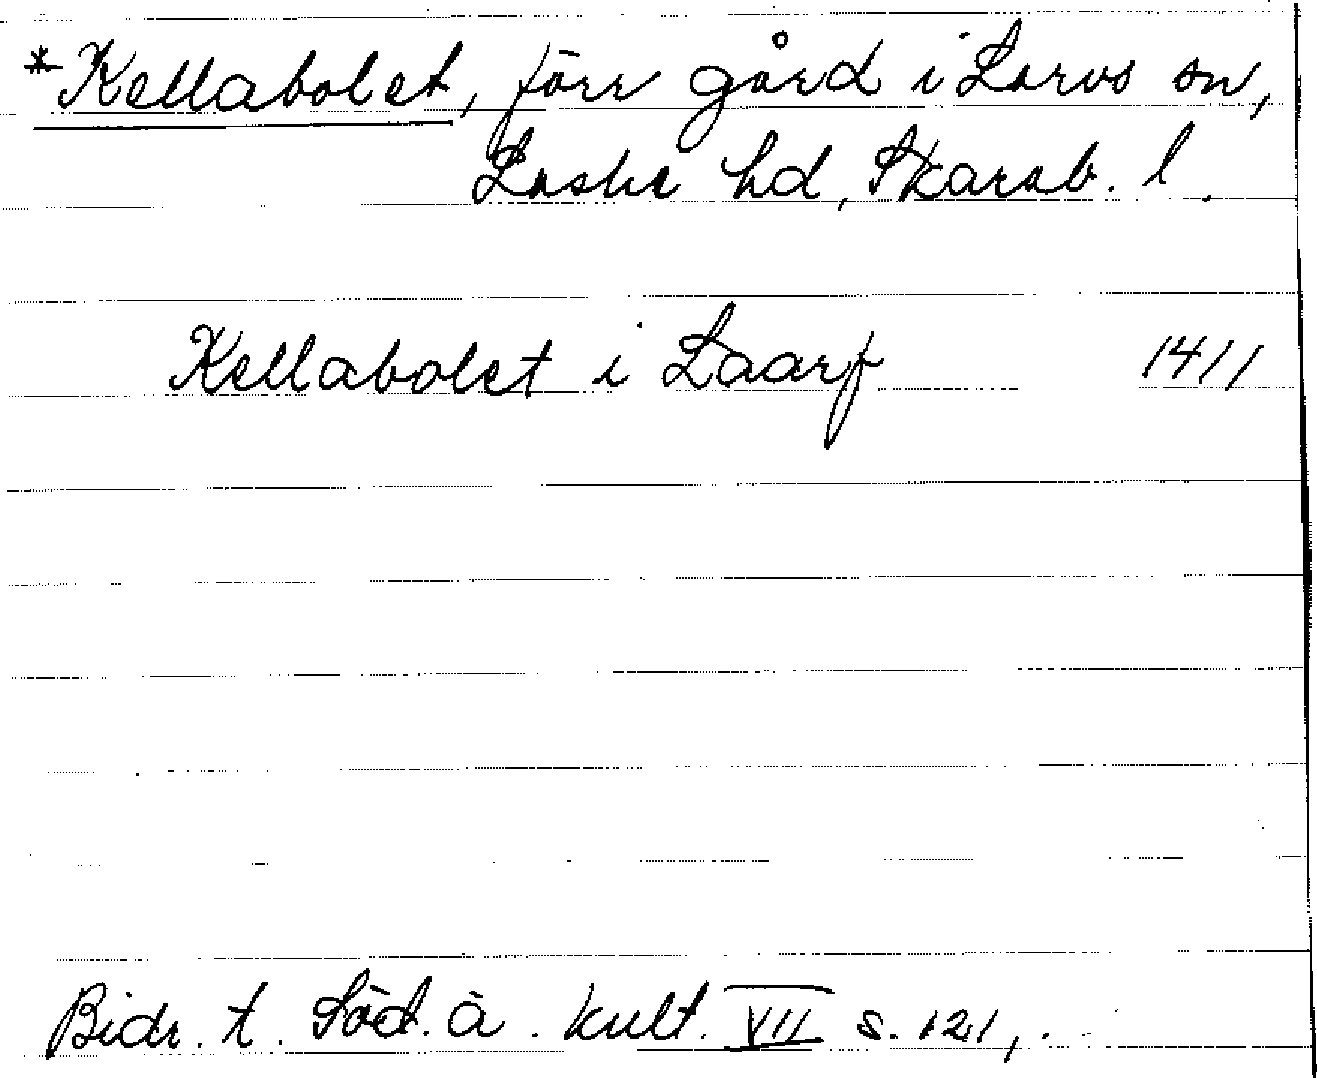 *Kellabolet, förr gård i Larvs sn,
Laske hd, Skarab. l.
Kellabolet i Laarf 1411
Bidr. t. Söd. ä. kult. VII s. 121,.